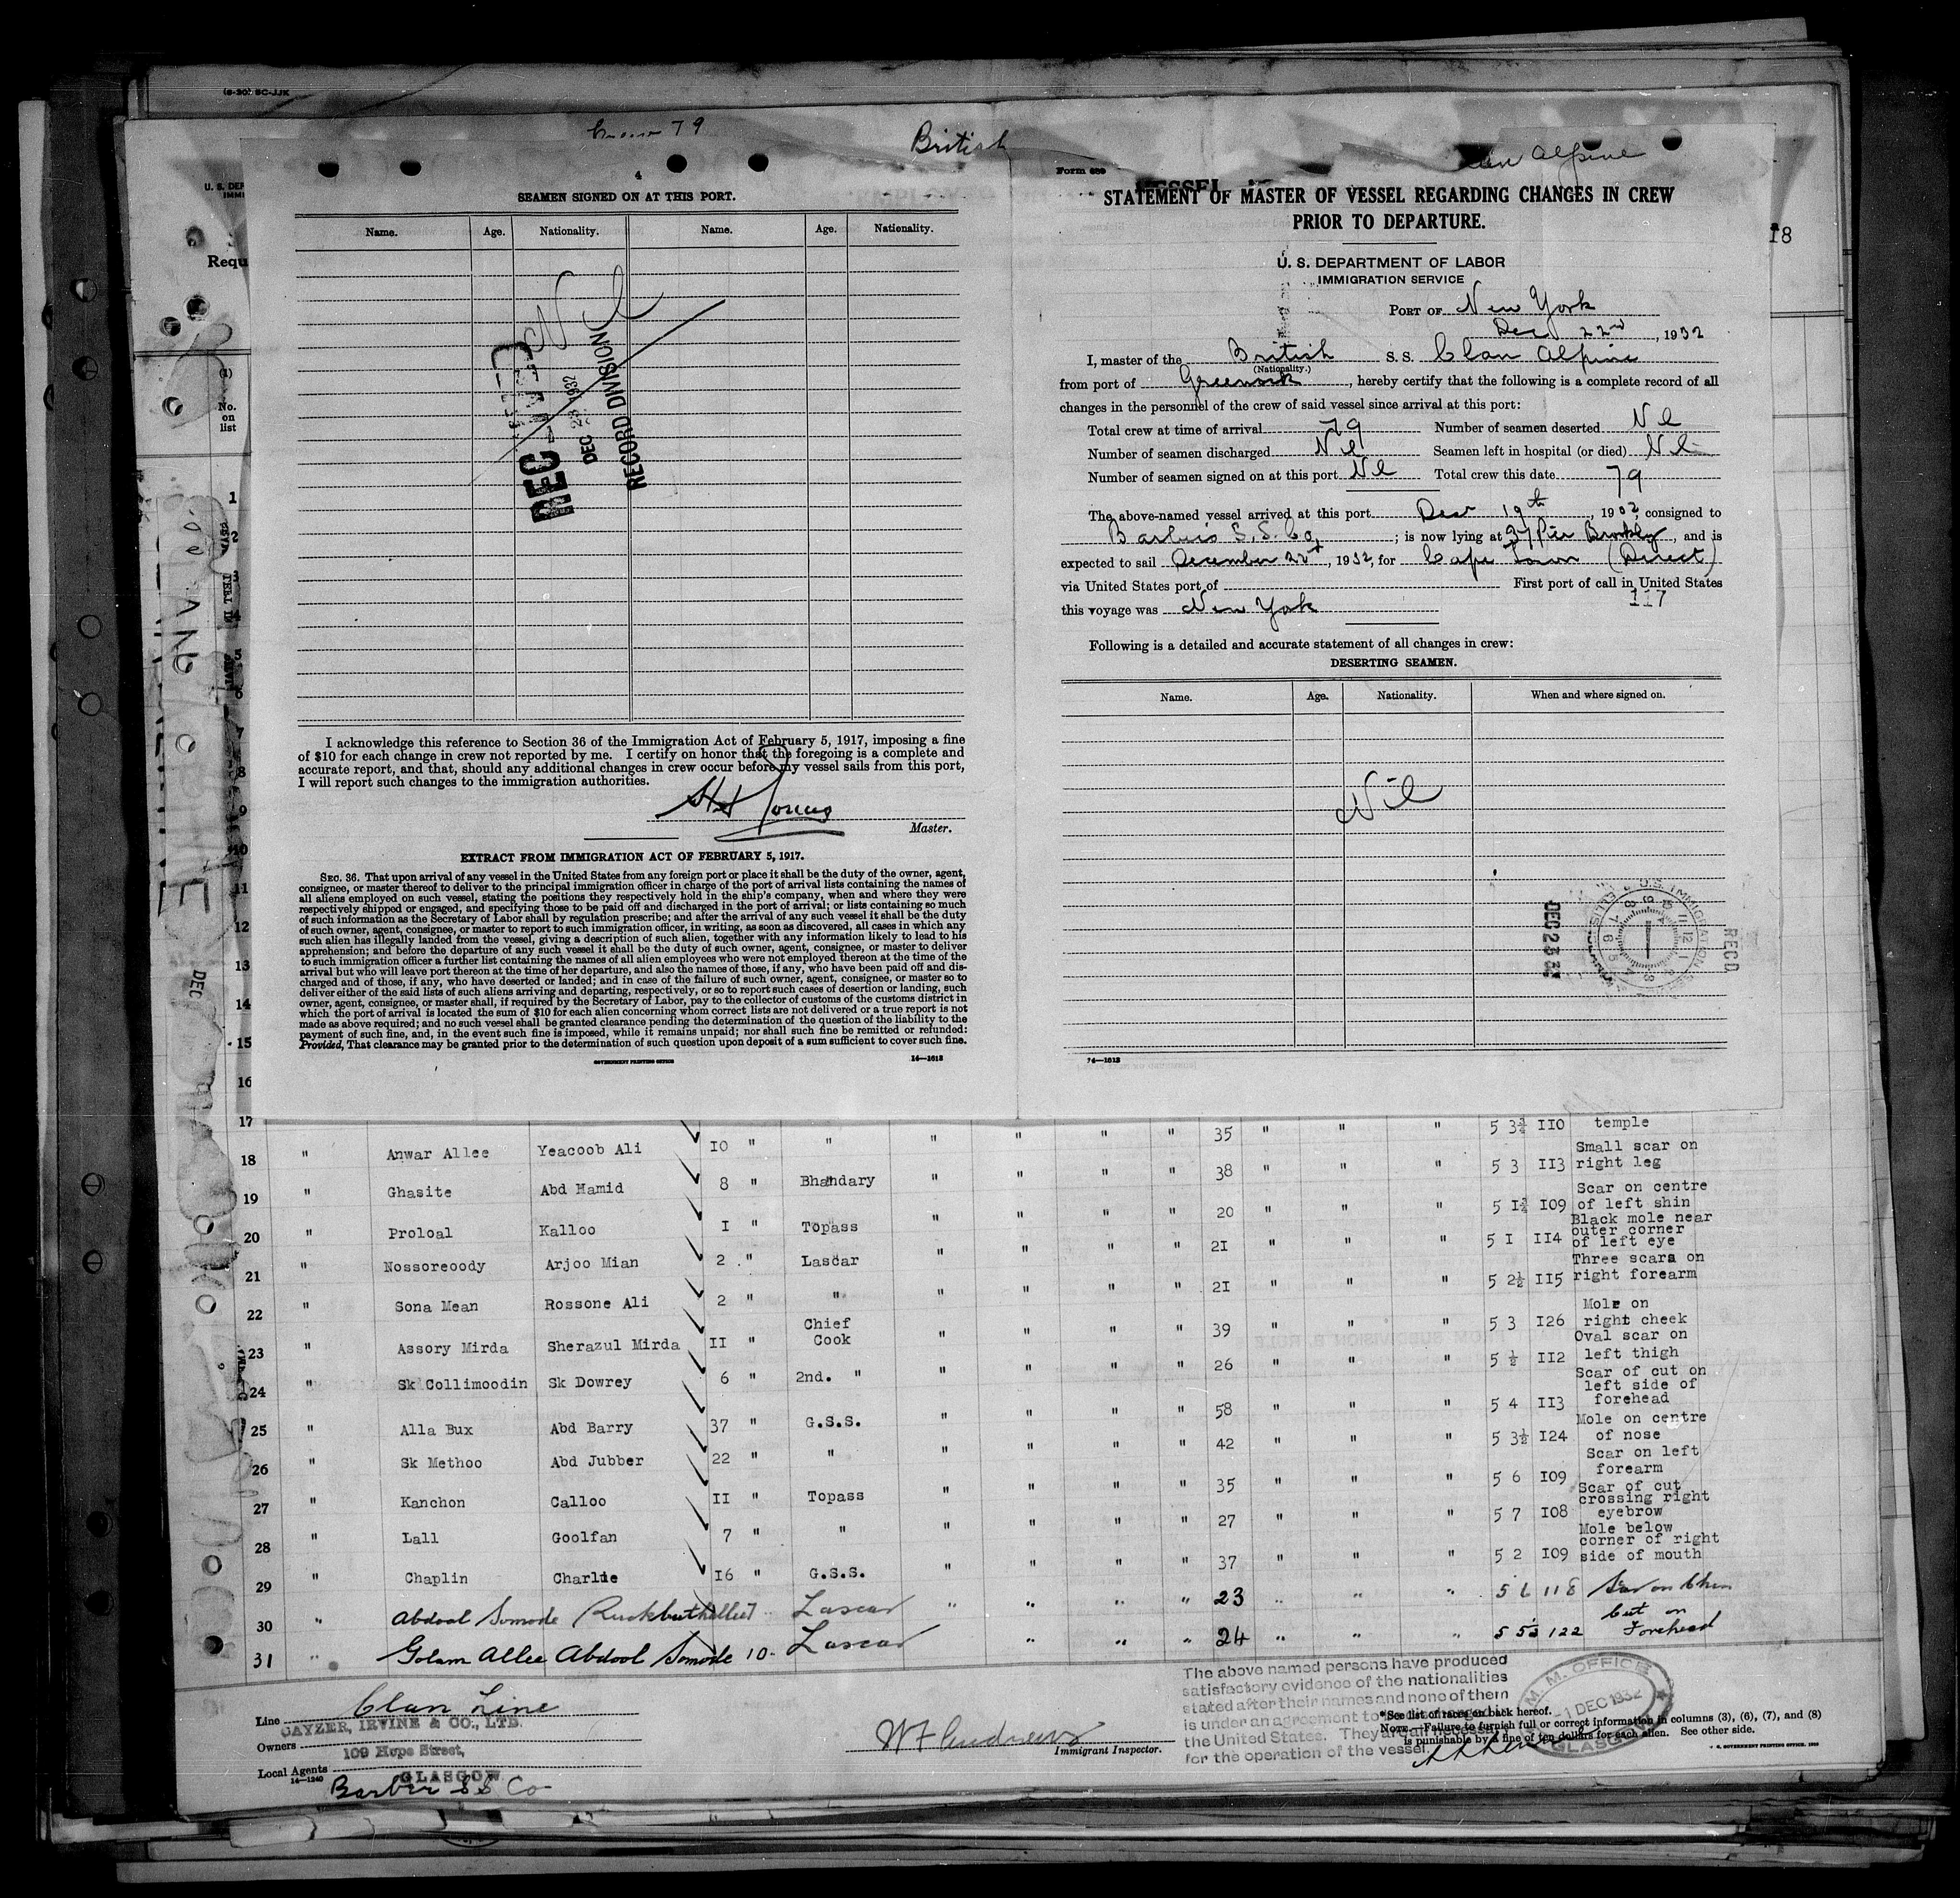 (8-30) SC-JJK
79
British
Alpine
4
SEAMEN SIGNED ON AT THIS PORT.
Name. Age. Nationality. Name. Age. Nationality.
Nil
DEC 23 1932
RECORD DIVISION
I acknowledge this reference to Section 36 of the Immigration Act of February 5, 1917, imposing a fine
of $10 for each change in crew not reported by me. I certify on honor that the foregoing is a complete and
accurate report, and that, should any additional changes in crew occur before my vessel sails from this port,
I will report such changes to the immigration authorities.
Master.
EXTRACT FROM IMMIGRATION ACT OF FEBRUARY 5, 1917.
SEC. 36. That upon arrival of any vessel in the United States from any foreign port or place it shall be the duty of the owner, agent,
consignee, or master thereof to deliver to the principal immigration officer in charge of the port of arrival lists containing the names of
all aliens employed on such vessel, stating the positions they respectively hold in the ship's company, when and where they were
respectively shipped or engaged, and specifying those to be paid off and discharged in the port of arrival; or lists containing so much
of such information as the Secretary of Labor shall by regulation prescribe; and after the arrival of any such vessel it shall be the duty
of such owner, agent, consignee, or master to report to such immigration officer, in writing, as soon as discovered, all cases in which any
such alien has illegally landed from the vessel, giving a description of such alien, together with any information likely to lead to his
apprehension; and before the departure of any such vessel it shall be the duty of such owner, agent, consignee, or master to deliver
to such immigration officer a further list containing the names of all alien employees who were not employed thereon at the time of the
arrival but who will leave port thereon at the time of her departure, and also the names of those, if any, who have been paid off and dis-
charged and of those, if any, who have deserted or landed; and in case of the failure of such owner, agent, consignee, or master so to
deliver either of the said lists of such aliens arriving and departing, respectively, or so to report such cases of desertion or landing, such
owner, agent, consignee, or master shall, if required by the Secretary of Labor, pay to the collector of customs of the customs district in
which the port of arrival is located the sum of $10 for each alien concerning whom correct lists are not delivered or a true report is not
made as above required; and no such vessel shall be granted clearance pending the determination of the question of the liability to the
payment of such fine, and, in the event such fine is imposed, while it remains unpaid; nor shall such fine be remitted or refunded:
Provided, That clearance may be granted prior to the determination of such question upon deposit of a sum sufficient to cover such fine.
GOVERNMENT PRINTING OFFICE 14—1613
Form 689
STATEMENT OF MASTER OF VESSEL REGARDING CHANGES IN CREW
PRIOR TO DEPARTURE.
U. S. DEPARTMENT OF LABOR
IMMIGRATION SERVICE
PORT OF New York
Dec 22nd, 1932
I, master of the British S. S. Clan Alpine
(Nationality.)
from port of Greenock, hereby certify that the following is a complete record of all
changes in the personnel of the crew of said vessel since arrival at this port:
Total crew at time of arrival 79 Number of seamen deserted Nil
Number of seamen discharged Nil Seamen left in hospital (or died) Nil
Number of seamen signed on at this port Nil Total crew this date 79
The above-named vessel arrived at this port Dec 19th, 1932 consigned to
S. S. Co; is now lying at 37 Pier Brooklyn, and is
expected to sail December 22nd, 1932, for Cape Town (Direct)
via United States port of First port of call in United States
117
this voyage was New York
Following is a detailed and accurate statement of all changes in crew:
DESERTING SEAMEN.
Name. Age. Nationality. When and where signed on.
Nil
DEC 23 32
U.S. IMMIGRATION
RECD
14—1613
18
No.
on
list
1
2
3
4
5
6
7
8
9
10
11
12
13
14
15
16
17
" " " " " 35 " " " 5 3¾ 110 temple
18 " Anwar Allee Yeacoob Ali 10 " " " " " " 38 " " " 5 3 113 Small scar on right leg
19 " Ghasite Abd Hamid 8 " Bhandary " " " " 20 " " " 5 1¾ 109 Scar on centre of left shin
20 " Proloal Kalloo I " Topass " " " " 21 " " " 5 I 114 Black mole near outer corner of left eye
21 " Nossoreoody Arjoo Mian 2 " Lascar " " " " 21 " " " 5 2½ 115 Three scars on right forearm
22 " Sona Mean Rossone Ali 2 " " " " " " 39 " " " 5 3 126 Mole on right cheek
23 " Assory Mirda Sherazul Mirda II " Chief Cook " " " " 26 " " " 5 ½ 112 Oval scar on left thigh
24 " Sk Collimoodin Sk Dowrey 6 " 2nd. " " " " " 58 " " " 5 4 113 Scar of cut on left side of forehead
25 " Alla Bux Abd Barry 37 " G.S.S. " " " " 42 " " " 5 3½ 124 Mole on centre of nose
26 " Sk Methoo Abd Jubber 22 " " " " " " 35 " " " 5 6 109 Scar on left forearm
27 " Kanchon Calloo II " Topass " " " " 27 " " " 5 7 108 Scar of cut crossing right eyebrow
28 " Lall Goolfan 7 " " " " " " 37 " " " 5 2 109 Mole below corner of right side of mouth
29 " Chaplin Charlie 16 " G.S.S. " " " " 23 " " " 5 6 118 Scar on Chin
30 " Abdool Somode Lascar " " " " 24 " " " 5 5½ 122 Cut on Forehead
31 " Golam Allee Abdool Somode 10 Lascar
Line Clan Line
CAYZER, IRVINE & CO., LTD.
Owners
109 Hope Street,
Local Agents GLASGOW
14—1240
Barber SS Co
Immigrant Inspector.
The above named persons have produced
satisfactory evidence of the nationalities
stated after their names and none of them
is under an agreement to
the United States. They are all necessary
for the operation of the vessel.
* See list of races on back hereof.
NOTE.—Failure to furnish full or correct information in columns (3), (6), (7), and (8)
is punishable by a fine of ten dollars for each alien. See other side.
U. S. GOVERNMENT PRINTING OFFICE
M. M. OFFICE
1 DEC 1932
GLASGOW